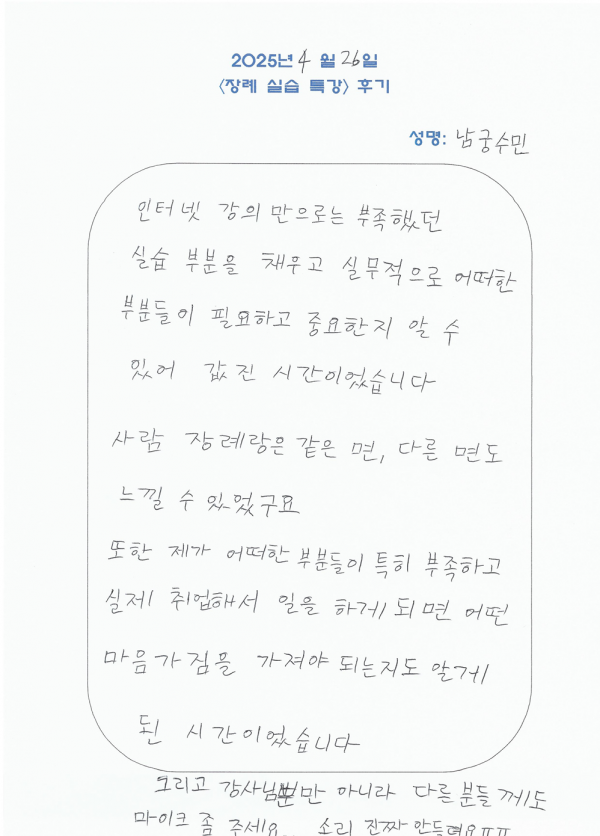 2025년 4 월 26일
〈장례 실습 특강〉 후기
성명: 남궁수민
인터넷 강의 만으로는 부족했던
실습 부분을 채우고 실무적으로 어떠한
부분들이 필요하고 중요한지 알 수
있어 값진 시간이었습니다
사람 장례랑은 같은 면, 다른 면도
느낄 수 있었구요
또한 제가 어떠한 부분들이 특히 부족하고
실제 취업해서 일을 하게 되면 어떤
마음가짐을 가져야 되는지도 알게
된 시간이었습니다
그리고 강사님뿐만 아니라 다른 분들 께도
마이크 좀 주세요.. 소리 진짜 안들려요ㅠㅠ